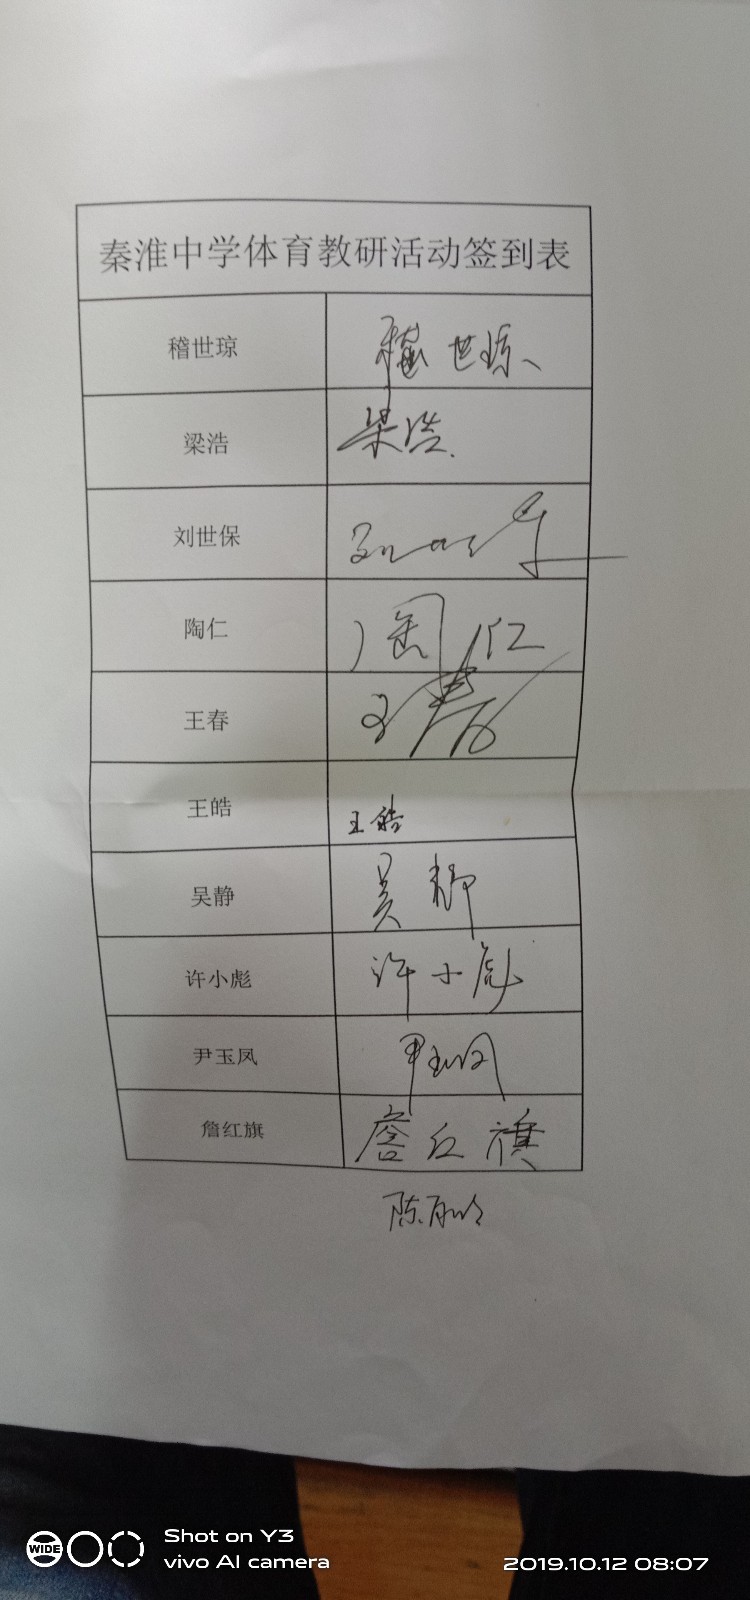 秦淮中学体育教研活动签到表
稽世琼 稽世琼
梁浩 梁浩
刘世保 刘世保
陶仁 陶仁
王春 王春
王皓 王皓
吴静 吴静
许小彪 许小彪
尹玉凤 尹玉凤
詹红旗 詹红旗
陈
WIDE
Shot on Y3
vivo AI camera
2019.10.12 08:07